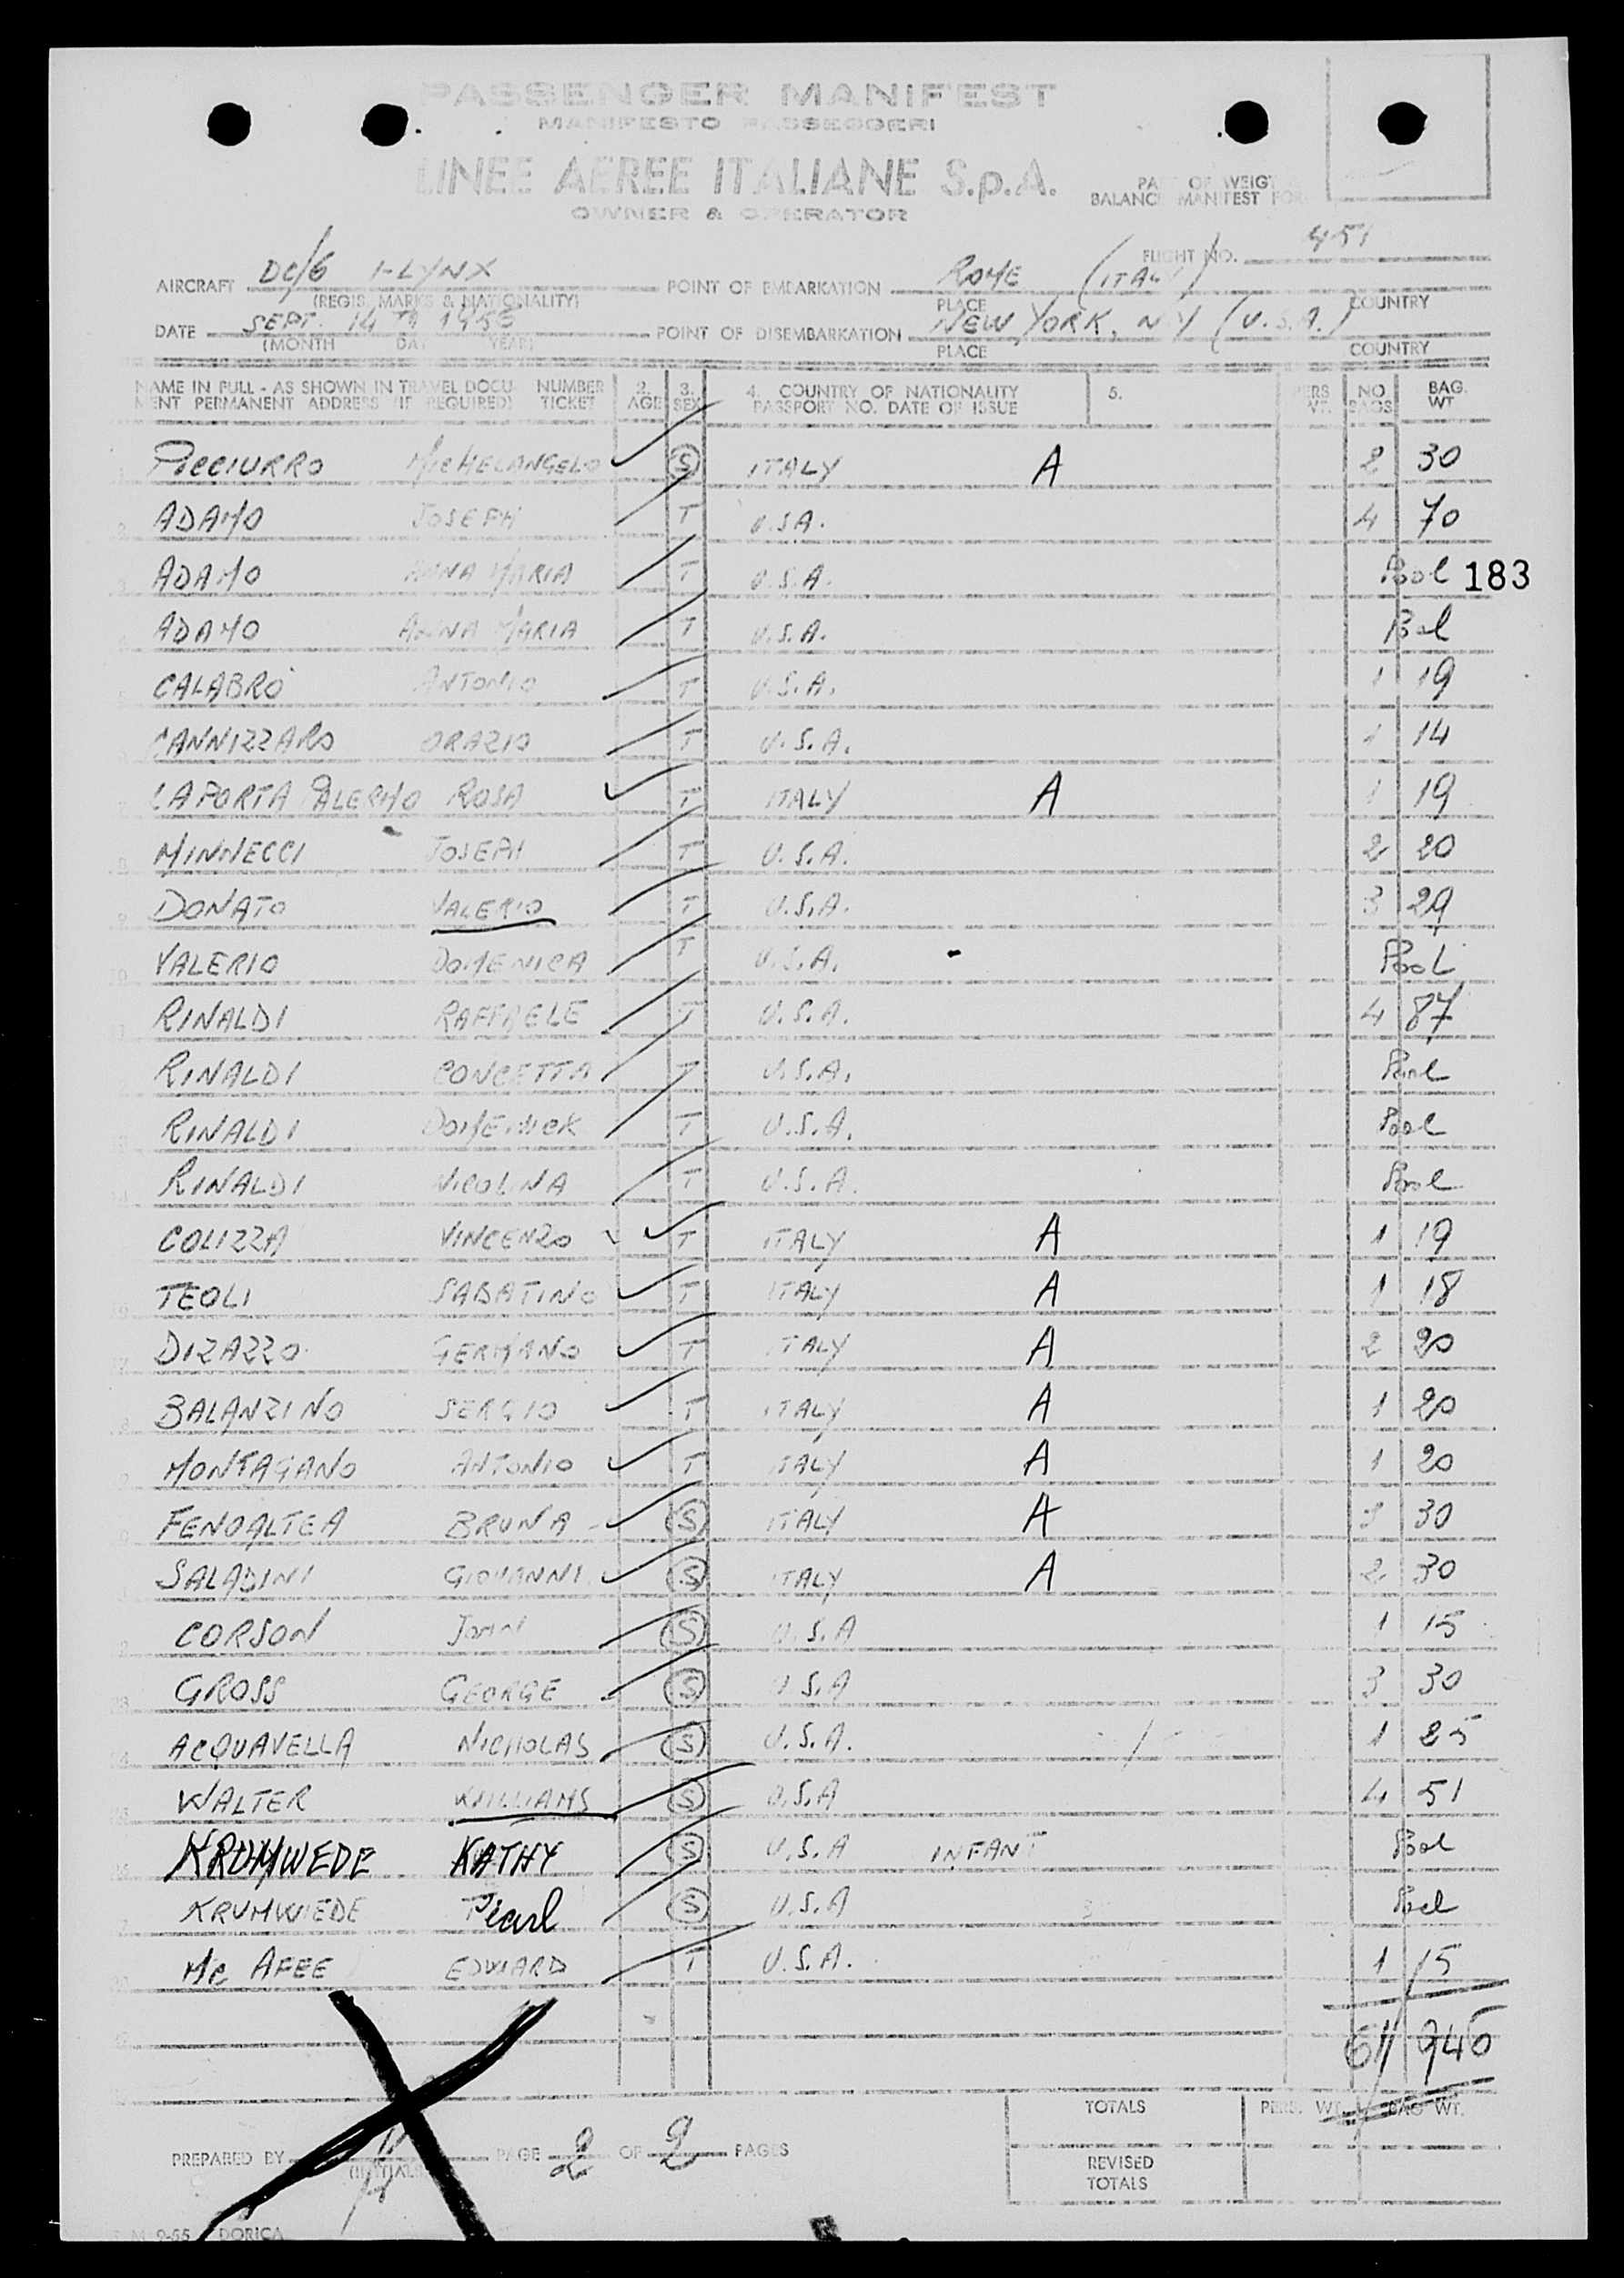 PASSENGER MANIFEST
MANIFESTO PASSEGGERI
LINEE AEREE ITALIANE S.p.A.
OWNER & OPERATOR
BALANCE MANIFEST FOR
FLIGHT NO. 451
AIRCRAFT DC/6 I-LYNX POINT OF EMBARKATION ROME (ITALY)
(REGIS. MARKS & NATIONALITY) PLACE COUNTRY
DATE SEPT. 14TH 1956 POINT OF DISEMBARKATION NEW YORK, N.Y (U.S.A.)
(MONTH DAY YEAR) PLACE COUNTRY
NAME IN FULL - AS SHOWN IN TRAVEL DOCU- NUMBER 2. 3. 4. COUNTRY OF NATIONALITY 5. PERS NO BAG.
MENT PERMANENT ADDRESS (IF REQUIRED) TICKET AGE SEX PASSPORT NO. DATE OF ISSUE WT. BAGS WT
PICCIURRO MICHELANGELO S ITALY A 2 30
ADAMO JOSEPH T U.S.A. 4 70
ADAMO ANNA MARIA T U.S.A. Pool 183
ADAMO ANNA MARIA T U.S.A. Pool
CALABRO' ANTONIO T U.S.A. 1 19
CANNIZZARO ORAZIO T U.S.A. 1 14
LAPORTA PALERMO ROSA T ITALY A 1 19
MINNECCI JOSEPH T U.S.A. 2 20
DONATO VALERIO T U.S.A. 3 29
VALERIO DOMENICA T U.S.A. Pool
RINALDI RAFFAELE T U.S.A. 4 87
RINALDI CONCETTA T U.S.A. Pool
RINALDI DOMENICK T U.S.A. Pool
RINALDI NICOLINA T U.S.A. Pool
COLIZZA VINCENZO T ITALY A 1 19
TEOLI SABATINO T ITALY A 1 18
DIZAZZO GERMANO T ITALY A 2 20
BALANZINO SERGIO T ITALY A 1 20
MONTAGANO ANTONIO T ITALY A 1 20
FENOALTEA BRUNA S ITALY A 3 30
SALADINI GIOVANNI S ITALY A 2 30
CORSON JOHN S U.S.A 1 15
GROSS GEORGE S U.S.A 3 30
ACQUAVELLA NICHOLAS S U.S.A. 1 25
WALTER WILLIAMS S U.S.A 4 51
KRUMWEDE KATHY S U.S.A INFANT Pool
KRUMWIEDE Pearl S U.S.A Pool
Mc AFEE EDWARD T U.S.A. 1 15
61 940
TOTALS PERS. WT. BAG WT.
PREPARED BY (INITIALS) PAGE 2 OF 2 PAGES
REVISED
TOTALS
9-55 DORICA